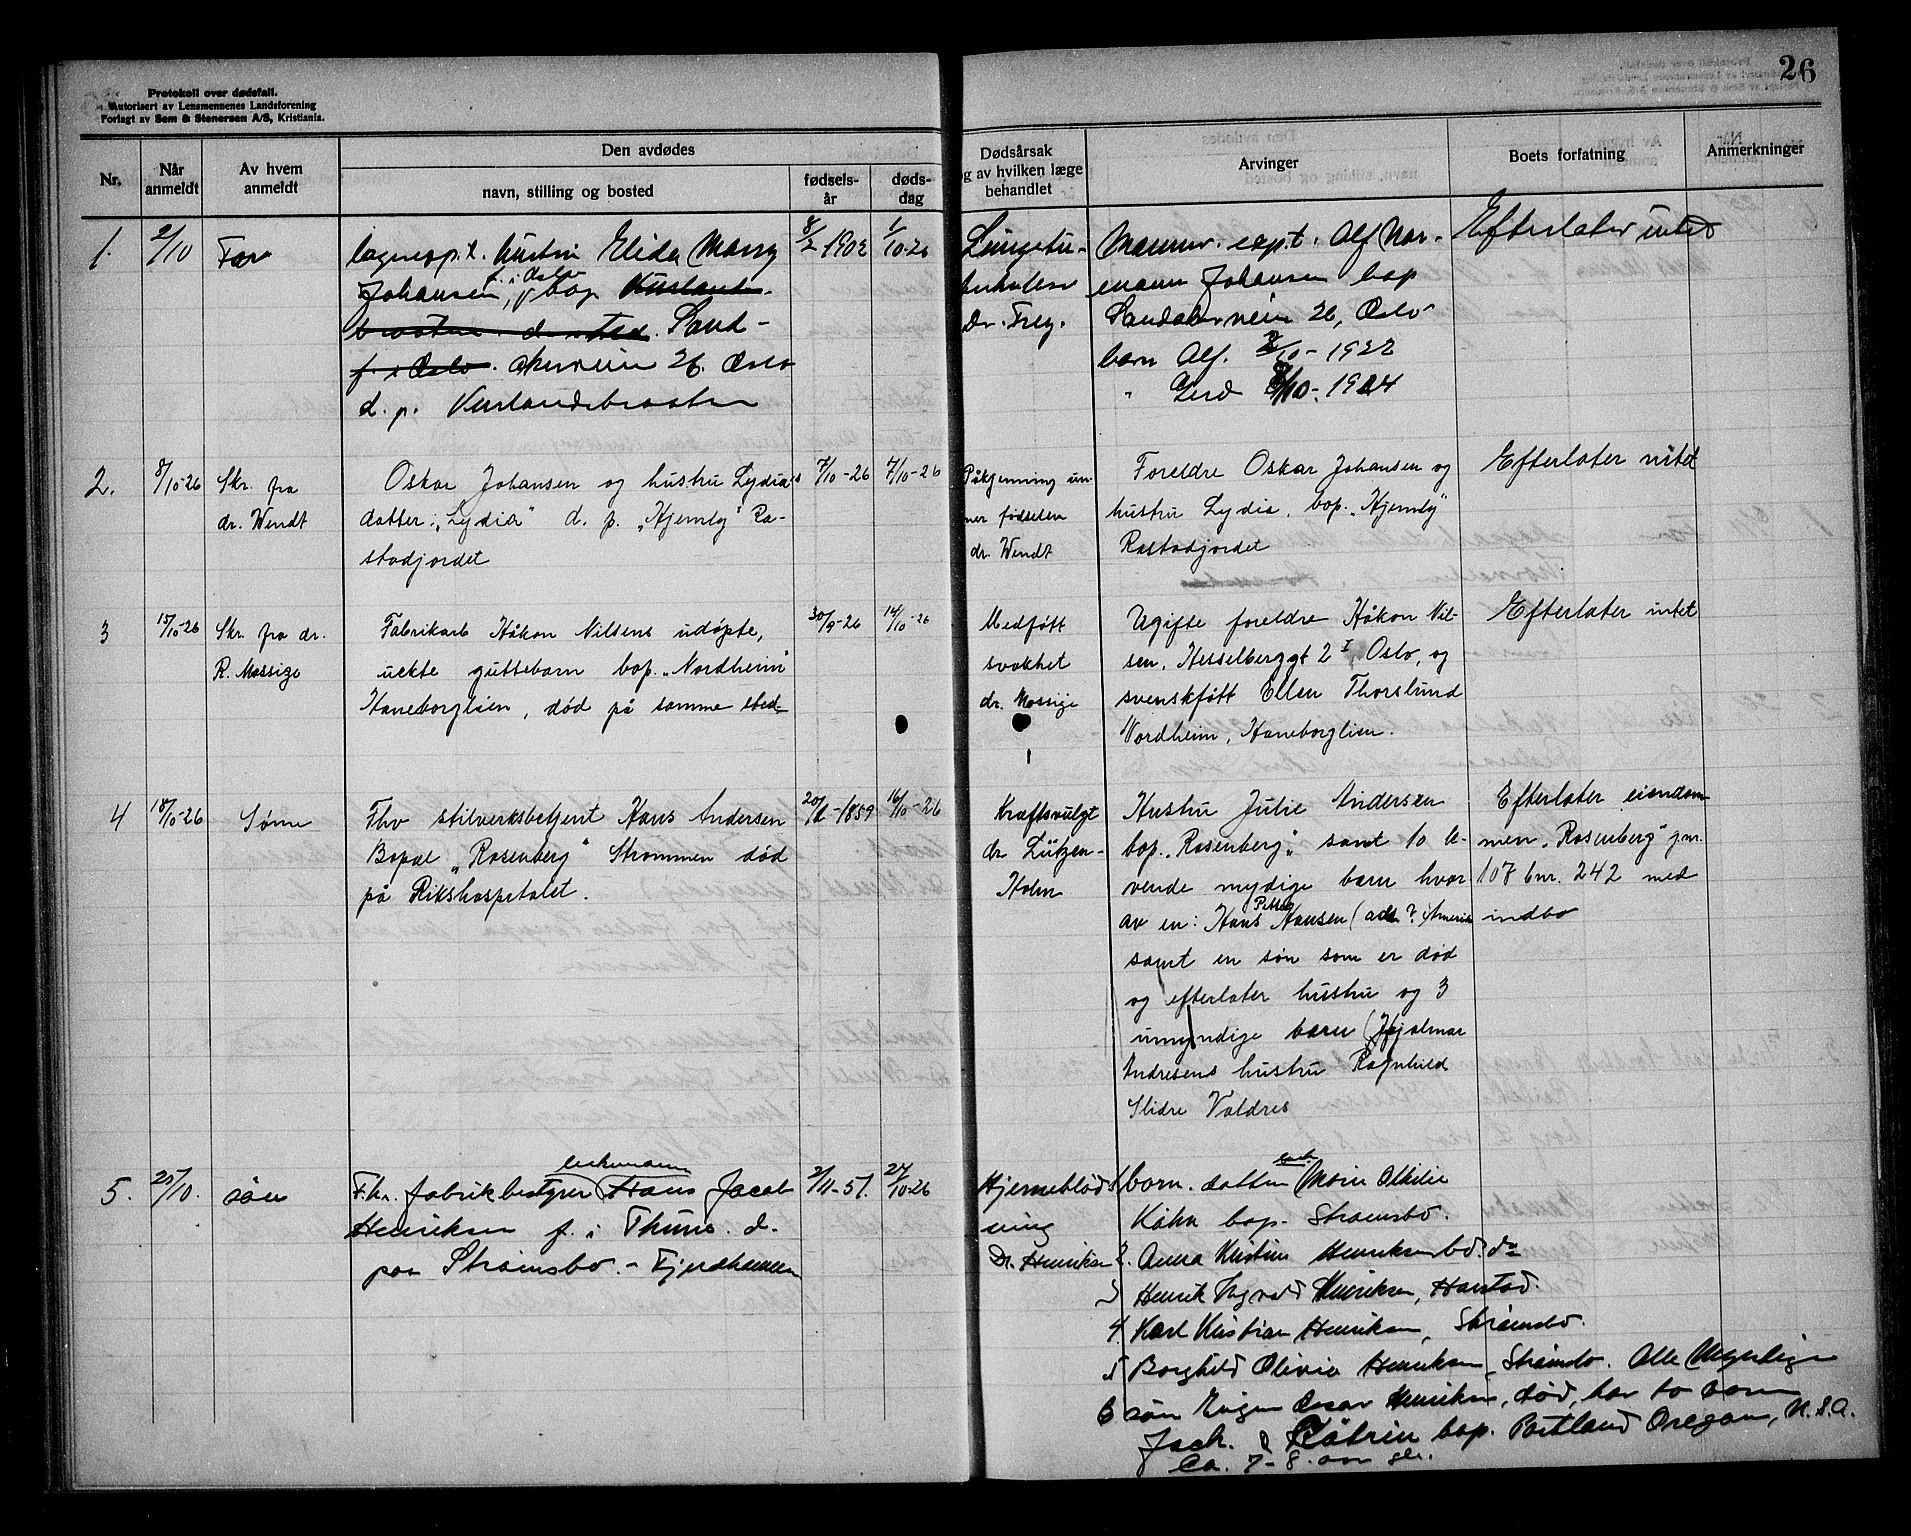 Protokoll over dødsfall.
Autorisert av Lensmennenes Landsforening
Forlagt av Sem & Stenersen A/S, Kristiania.
26
Nr.
Når anmeldt
Av hvem anmeldt
Den avdødes
navn, stilling og bosted
fødsels-år
døds-dag
Dødsårsak
og av hvilken læge
behandlet
Arvinger
Boets forfatning
Anmerkninger
1.
2/10
Far
hustru Elida
Johansen, f. i Oslo bop
Sand-
f. i Oslo. akerveien 26. Oslo
d. p. Kurlandsbraaten
8/2-1902
1/10-26
Lungetu-
berkulose
Dr. Frey.
capt. Alf Nor-
emann Johansen bop
26, Oslo
barn Alf. 2/10-1922
" Gerd 8/10-1924
Efterlater intet
2.
8/10-26
Skr. fra
dr. Wendt
Oskar Johansen og hustru Lydias
datter: "Lydia" d. p. "Hjemly" Ra-
stadjordet
7/10-26
7/10-26
un-
fødselen
dr. Wendt
Foreldre Oskar Johansen og
hustru Lydia, bop. "Hjemly"
Rastadjordet
Efterlater intet
3
15/10-26
Skr. fra dr.
R. Mossige
Fabrikarb Håkon Nilsens udøpte,
uekte guttebarn bop. "Nordheim"
Haneborglien, død på samme sted
30/9-26
14/10-26
Medføtt
svakhet
dr. Mossige
Ugifte foreldre Håkon Nil-
sen, Hesselberggt 2 I, Oslo, og
svenskføtt Ellen Thorslund
Nordheim, Haneborglien.
Efterlater intet
4
18/10-26
Sønn
Fhv stilverksbetjent Hans Andersen
Bopæl "Rosenberg" Strømmen død
på Rikshospitalet.
1859
16/10-26
Kræftsvulst
dr Lützen-
Holm
Hustru Julie Andersen
bop. "Rosenberg" samt 10 le-
vende mydige barn hvor
av en: Hans Petter Hansen (adr. ? Amerik
samt en søn som er død
og efterlater hustru og 3
umyndige barn (Hjalmar
Andresens hustru Ragnhild
Slidre Valdres
Efterlater eiendom
men "Rosenberg" gnr.
107 bnr. 242 med
indbo
5.
25/10.
søn
enkemann
Fhv. fabrikbestyrer Hans Jacob
Henriksen f. i Thune. d.
paa Strømsbo. - Fjerdhammen
2/11-51.
24/10-26
Hjerneblød
ning
Dr. Henriksen
1 barn. datter enke Marie Othilie
Kåhn bop. Strømsbo.
2. Anna Kristine Henriksen bd. do
3 Henrik Henriksen, Harstad.
4 Karl Kristian Henriksen, Strømsbo.
5 Borghild Olivia Henriksen, Strømsbo. Alle Myndige
6 søn Eugen Oscar Henriksen, død, har to barn
Jack. & Kåtrin bop. Portland Oregon, U.S.A.
Ca. 7-8. aar gl.